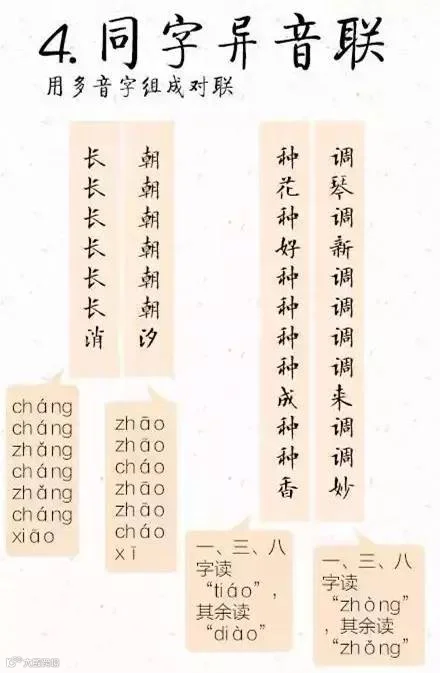 4.同字异音联
用多音字组成对联
朝朝朝朝朝朝汐
长长长长长长消
调琴调新调调调调来调调妙
种花种好种种种种成种种香
cháng
cháng
zhǎng
cháng
zhǎng
cháng
xiāo
zhāo
zhāo
cháo
zhāo
zhāo
cháo
xī
一、三、八
字读
“tiáo”，
其余读
“diào”
一、三、八
字读
“zhòng”
，其余读
“zhǒng”